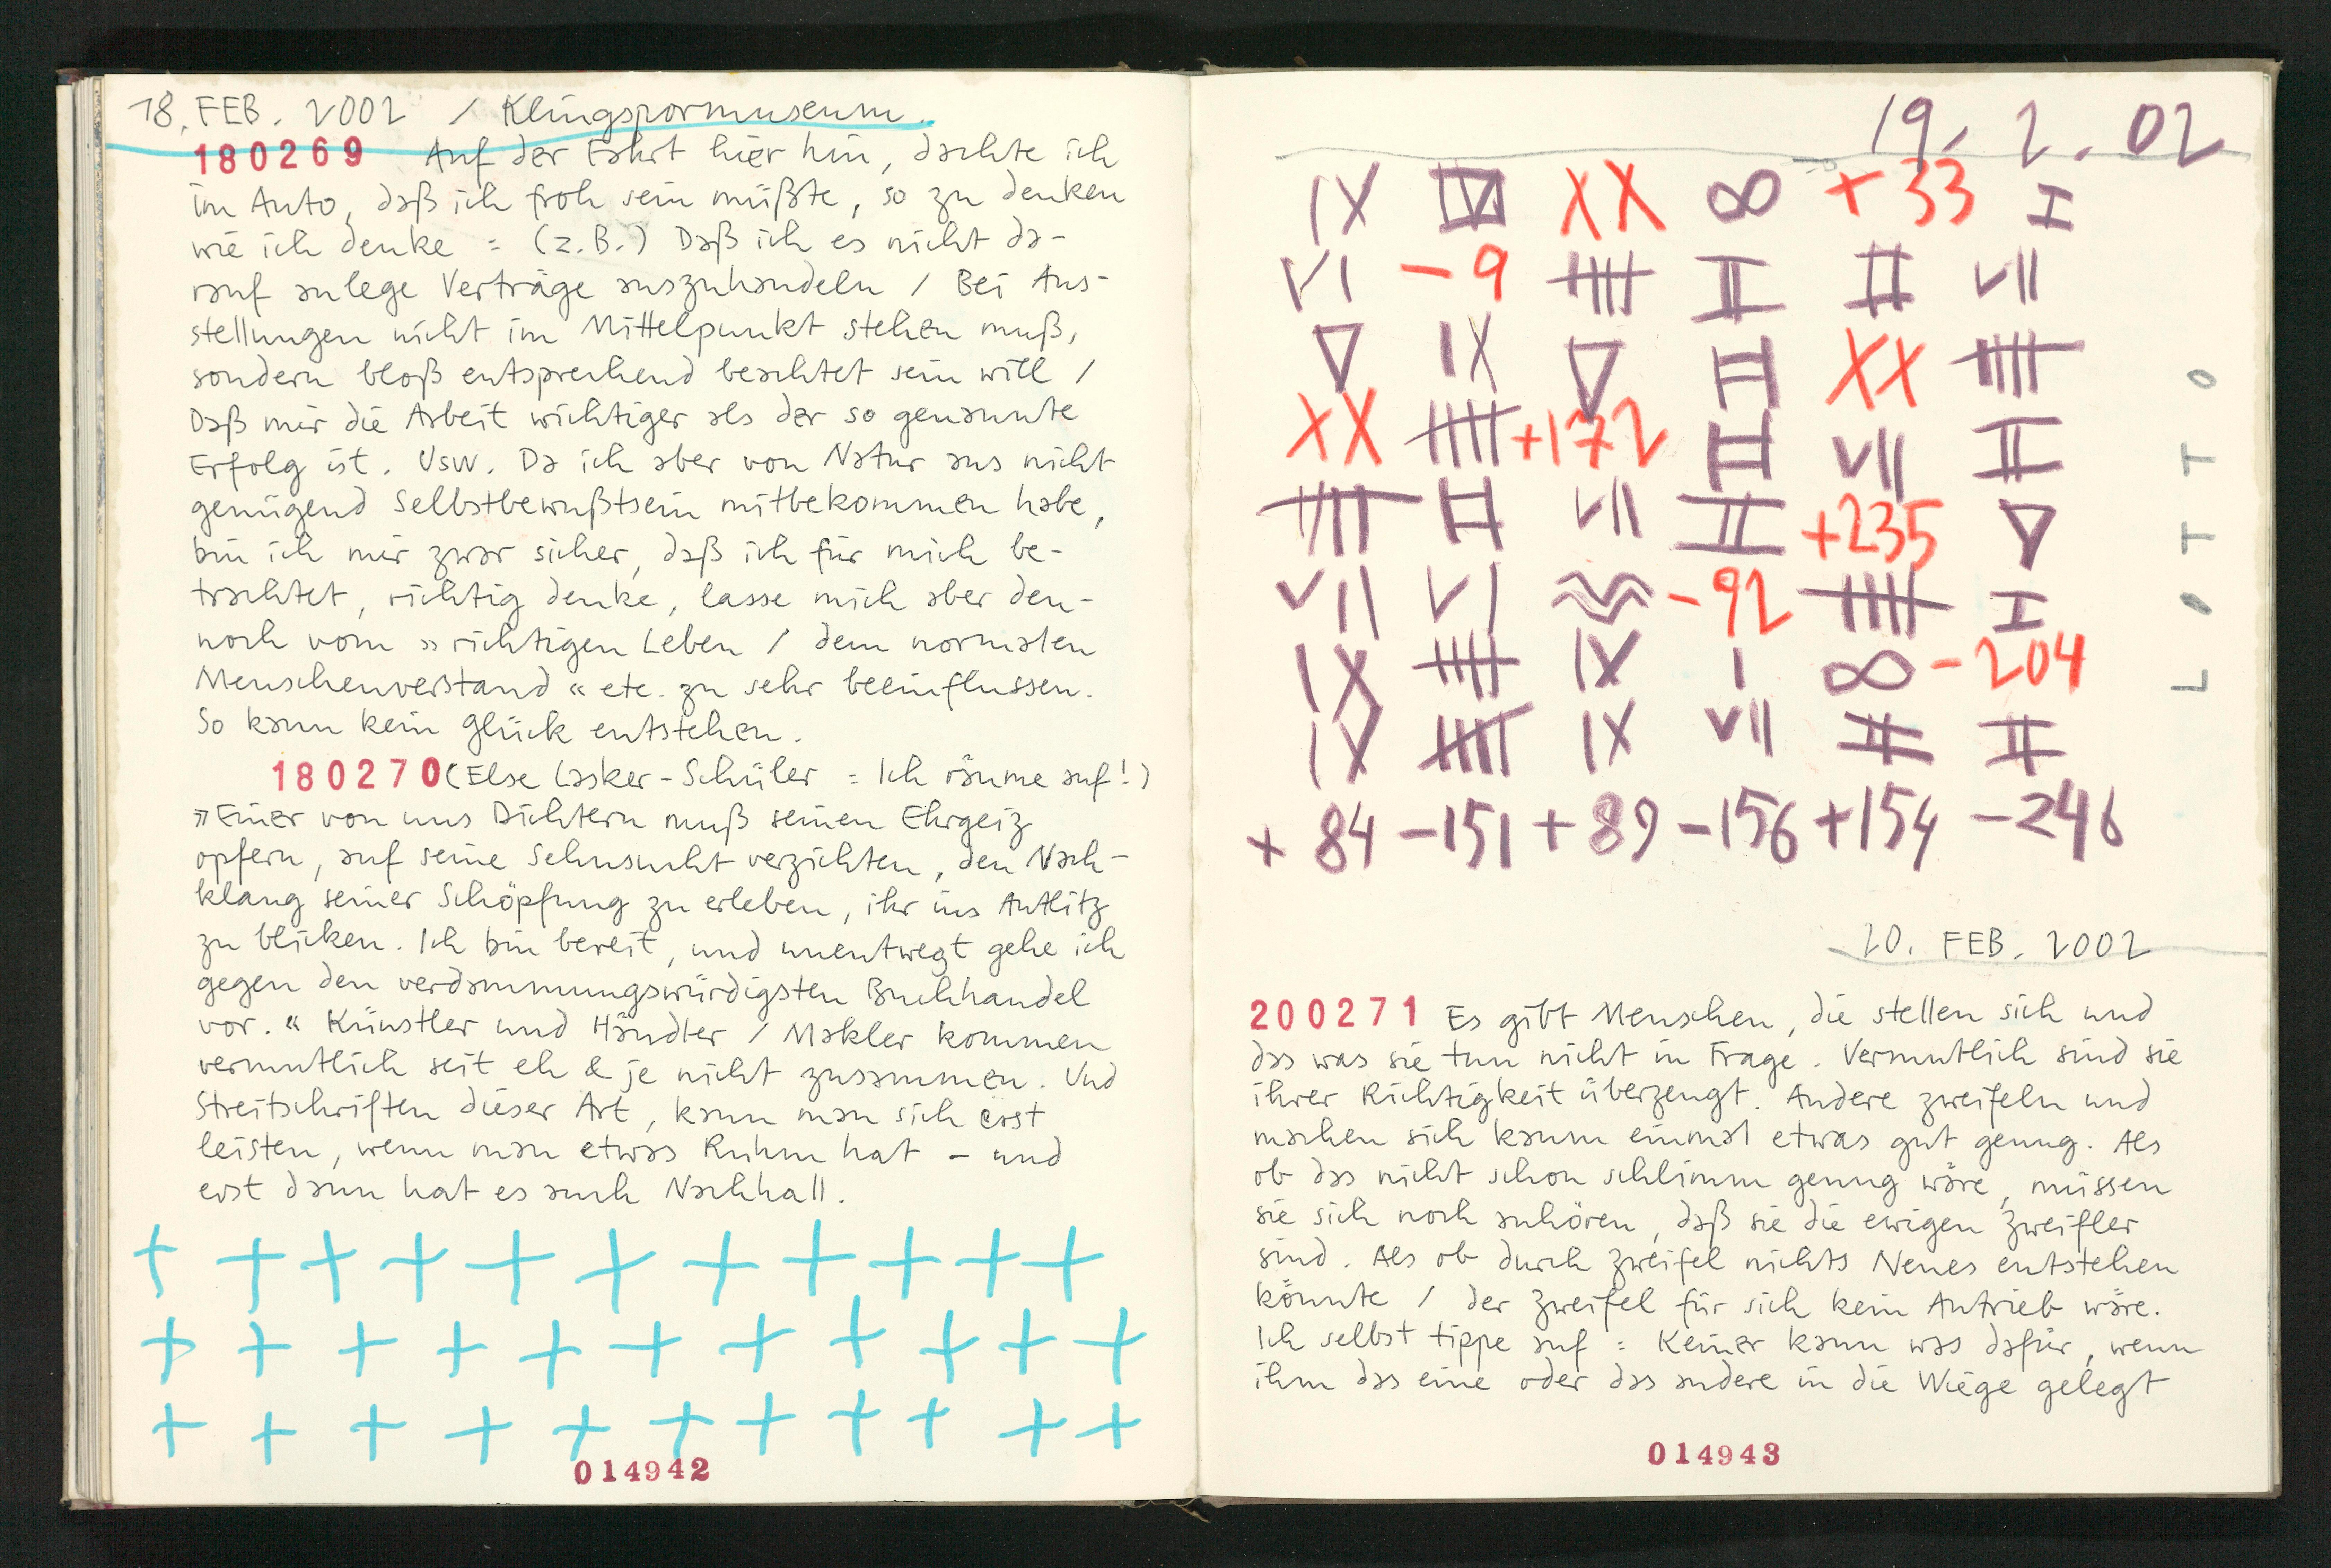 18. FEB. 2002 / Klingspormuseum.
180269 Auf der Fahrt hier hin, dachte ich
im Auto, daß ich froh sein müßte, so zu denken
wie ich denke = (z.B.) Daß ich es nicht da-
rauf anlege Verträge auszuhandeln / Bei Aus-
stellungen nicht im Mittelpunkt stehen muß,
sondern bloß entsprechend beachtet sein will /
Daß mir die Arbeit wichtiger als der so genannte
Erfolg ist. Usw. Da ich aber von Natur aus nicht
genügend Selbstbewußtsein mitbekommen habe,
bin ich mir zwar sicher, daß ich für mich be-
trachtet, richtig denke, lasse mich aber den-
noch vom »richtigen Leben / dem normalen
Menschenverstand« etc. zu sehr beeinflussen.
So kann kein Glück entstehen.
180270 (Else Lasker-Schüler = Ich räume auf!)
»Einer von uns Dichtern muß seinen Ehrgeiz
opfern, auf seine Sehnsucht verzichten, den Nach-
klang seiner Schöpfung zu erleben, ihr ins Antlitz
zu blicken. Ich bin bereit, und unentwegt gehe ich
gegen den verdammungswürdigsten Buchhandel
vor.« Künstler und Händler / Makler kommen
vermutlich seit eh & je nicht zusammen. Und
Streitschriften dieser Art, kann man sich erst
leisten, wenn man etwas Ruhm hat - und
erst dann hat es auch Nachhall.
+ + + + + + + + + + +
+ + + + + + + + + + +
+ + + + + + + + + + +
014942
19. 2. 02
IX IV XX ∞ +33 I
VI -9 IIII II II VII
V IX V II XX IIII
XX IIII +172 II VII II
IIII II VII II +235 V
VII VI -92 IIII I
IX IIII IX I ∞ -204
IX IIII IX VII II II
+84 -151 +89 -156 +154 -246
LOTTO
20. FEB. 2002
200271 Es gibt Menschen, die stellen sich und
das was sie tun nicht in Frage. Vermutlich sind sie
ihrer Richtigkeit überzeugt. Andere zweifeln und
machen sich kaum einmal etwas gut genug. Als
ob das nicht schon schlimm genug wäre, müssen
sie sich noch anhören, daß sie die ewigen Zweifler
sind. Als ob durch Zweifel nichts Neues entstehen
könnte / der Zweifel für sich kein Antrieb wäre.
Ich selbst tippe auf = Keiner kann was dafür, wenn
ihm das eine oder das andere in die Wiege gelegt
014943